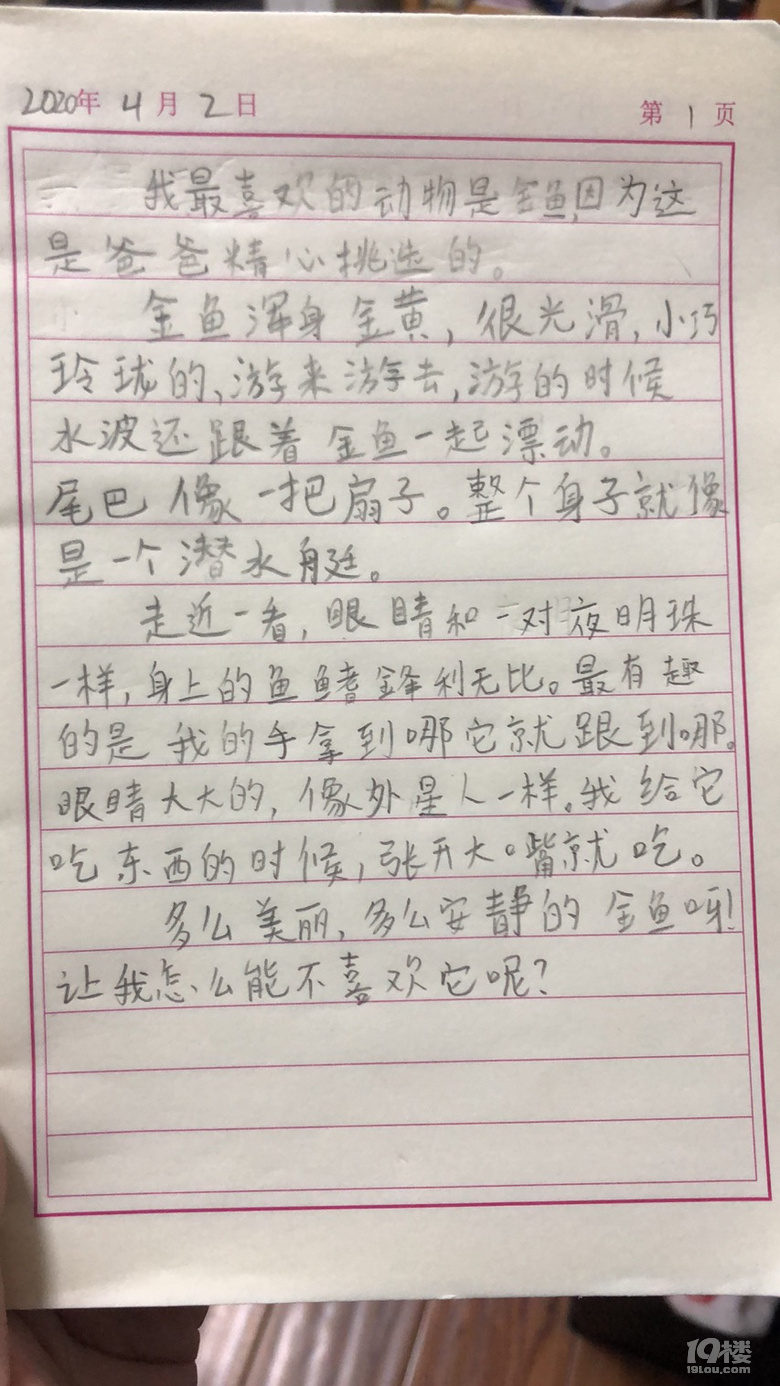 2020年 4月 2日 第 1 页
我最喜欢的动物是金鱼,因为这
是爸爸精心挑选的。
金鱼浑身金黄,很光滑,小巧
玲珑的、游来游去,游的时候
水波还跟着金鱼一起漂动。
尾巴像一把扇子。整个身子就像
是一个潜水艇。
走近一看,眼睛和一对夜明珠
一样,身上的鱼鳍鋒利无比。最有趣
的是我的手拿到哪它就跟到哪。
眼睛大大的,像外星人一样。我给它
吃东西的时候,张开大嘴就吃。
多么美丽、多么安静的金鱼呀!
让我怎么能不喜欢它呢?
19楼
19lou.com